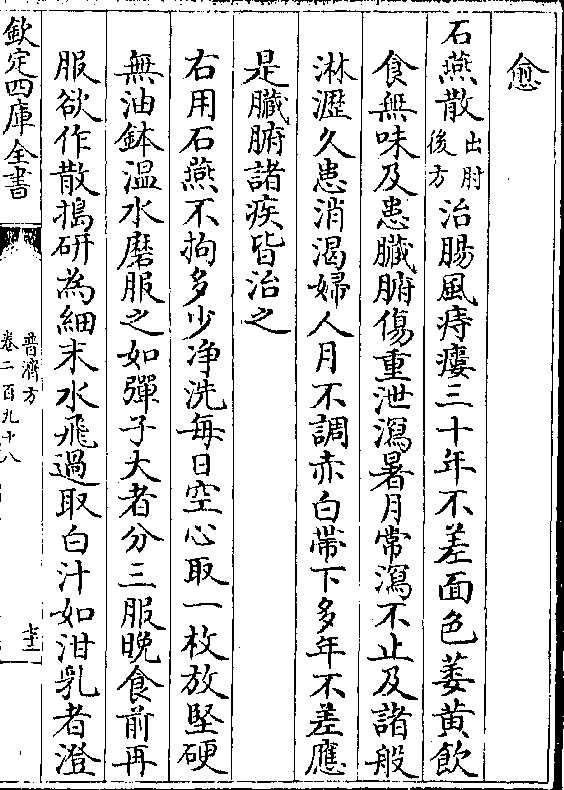 愈
石燕散出肘後方治腸風痔瘻三十年不差面色萎黄飲
食無味及患臟腑傷重泄瀉暑月常瀉不止及諸般
淋瀝久患消渴婦人月不調赤白帶下多年不差應
是臟腑諸疾皆治之
右用石燕不拘多少净洗每日空心取一枚放堅硬
無油鉢温水磨服之如彈子大者分三服晚食前再
服欲作散搗研為細末水飛過取白汁如泔乳者澄
欽定四庫全書
普濟方
卷二百九十八